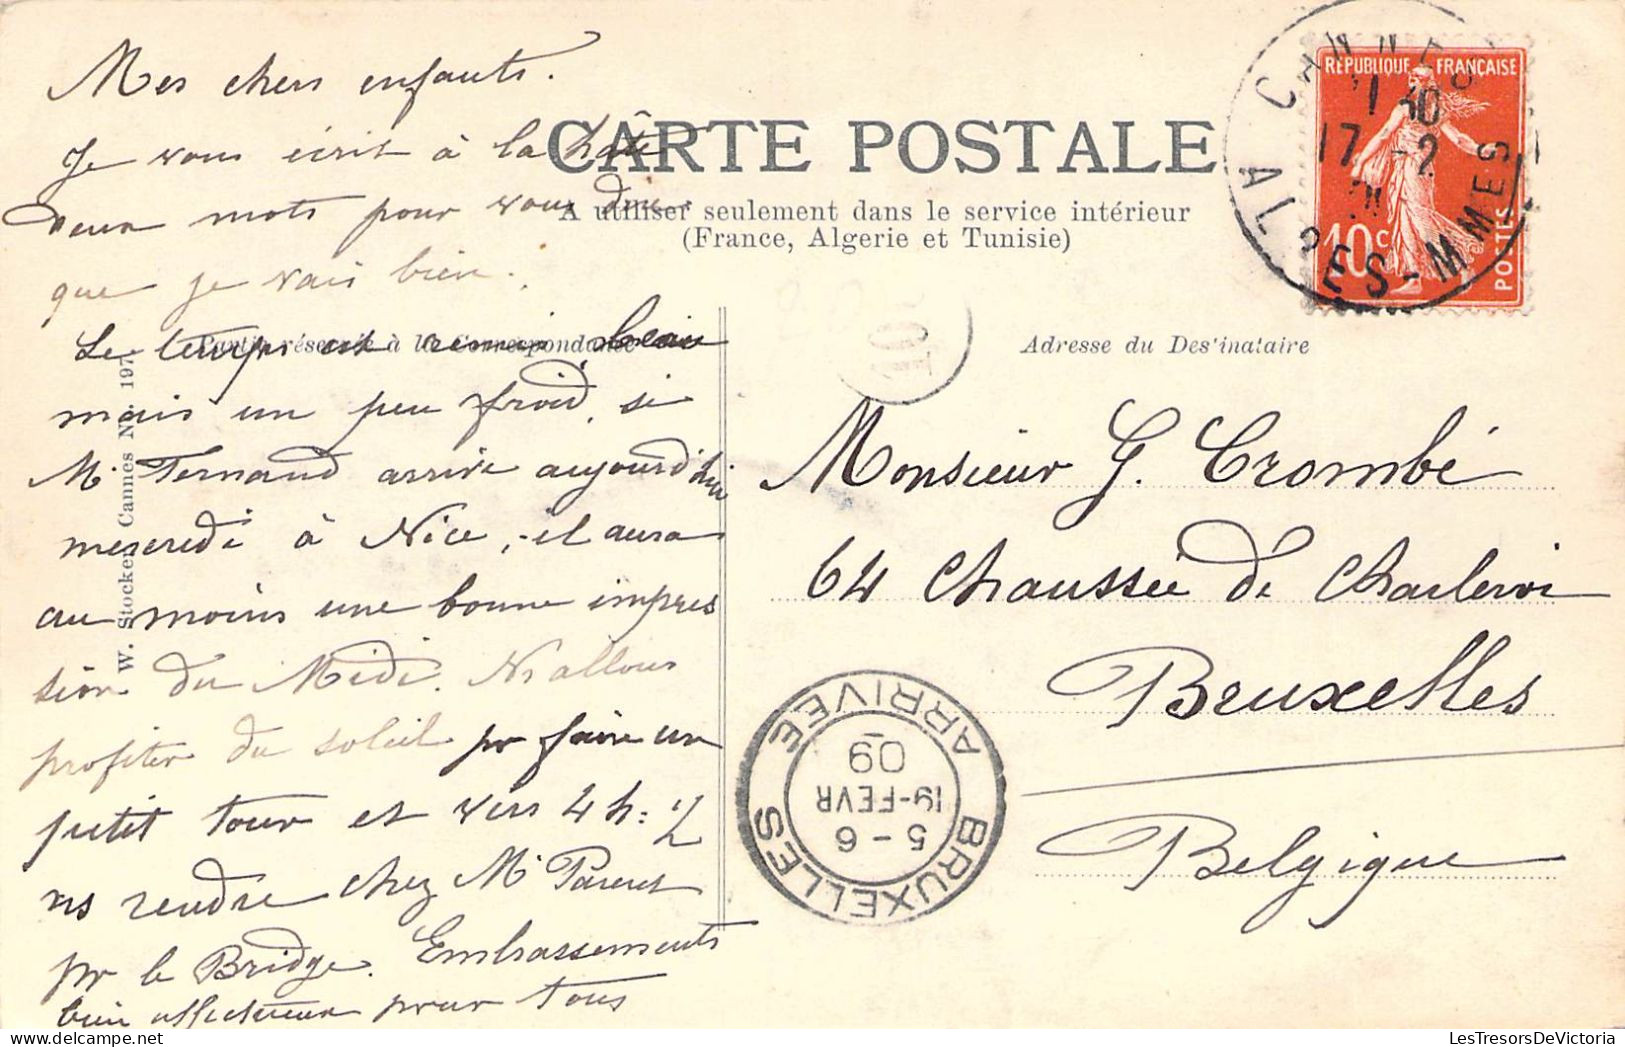 Mes chers enfants.
Je vous écrit à la hâte
deux mots pour vous dire
que je vais bien.
Le temps est aussi beau
mais un peu froid, si
Mr Fernand arrive aujourd'hui
mercredi à Nice, il aura
au moins une bonne impres
sion du Midi. Ns allons
profiter du soleil pr faire un
petit tour et vers 4 h: 1/2
ns rendre chez Me Parent
pr le Bridge. Embrassements
bien affectueux pour tous
CARTE POSTALE
A utiliser seulement dans le service intérieur
(France, Algerie et Tunisie)
Partie réservée à la Correspondance
Adresse du Des'inataire
W. Stocker, Cannes No. 197
RÉPUBLIQUE FRANÇAISE
10c
POSTES
CANNES
17 -2
ALPES-MMES
Monsieur G. Crombé
64 Chaussée de Charleroi
Bruxelles
Belgique
BRUXELLES
5 - 6
19-FEVR
09
ARRIVEE
LesTresorsDeVictoria